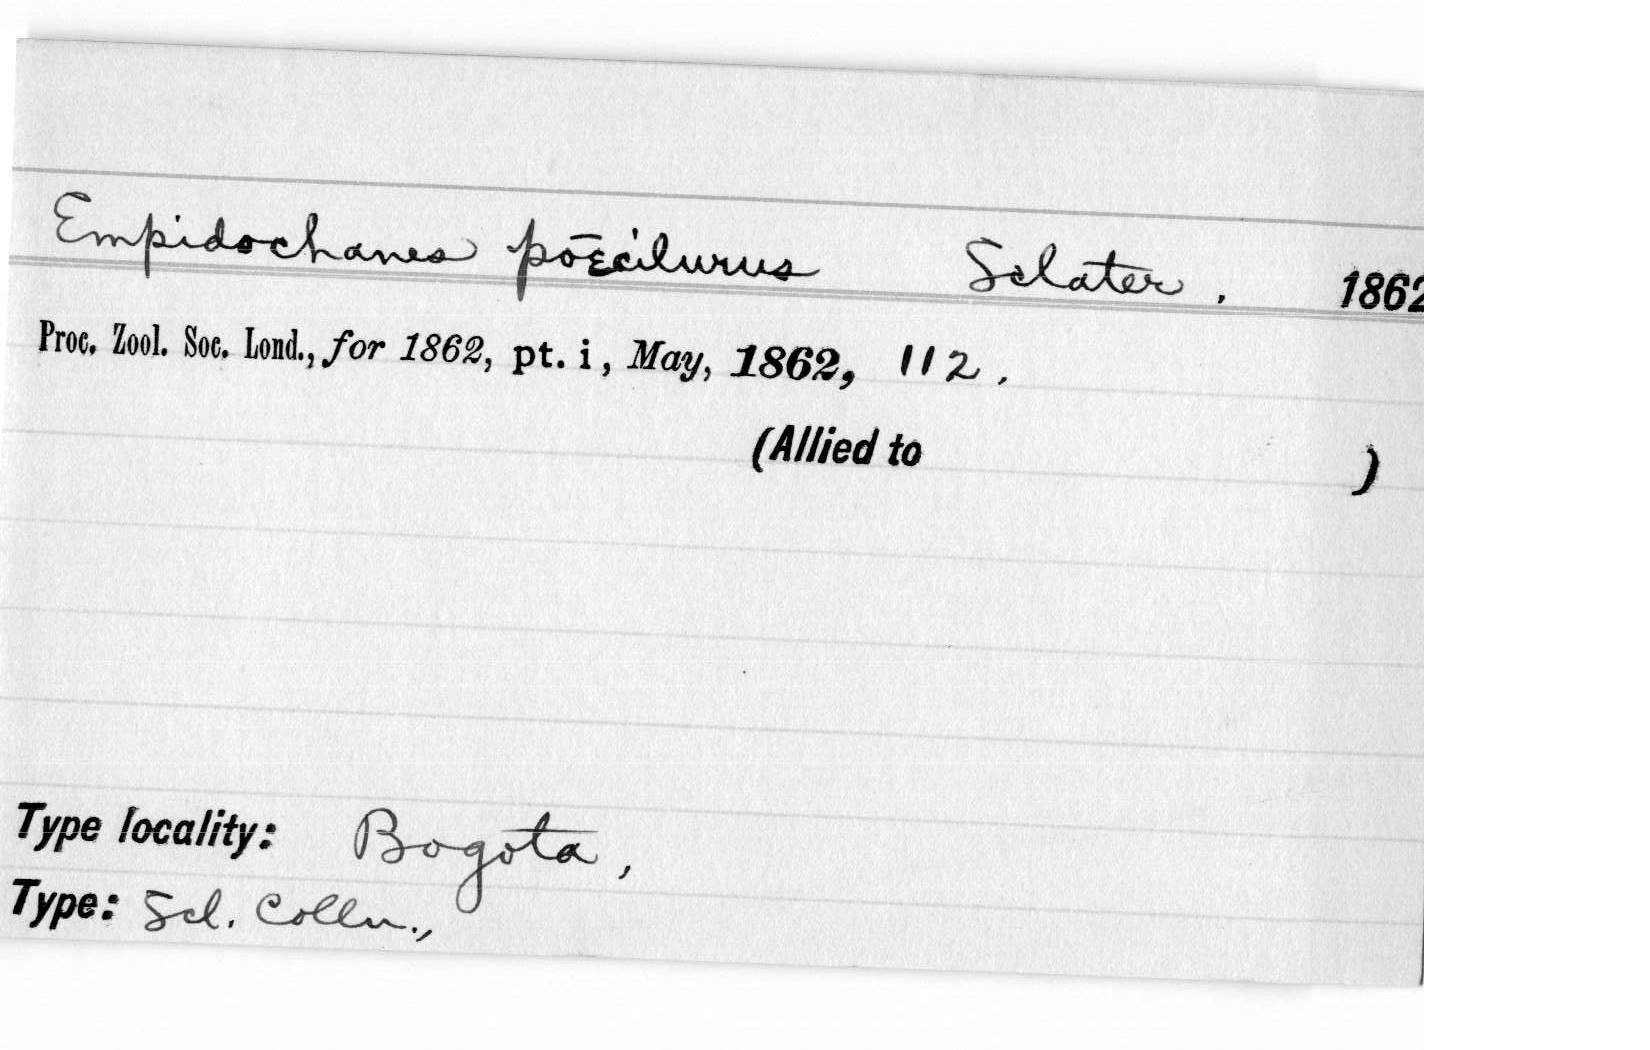 Empidochanes pōecilurus Sclater. 1862
Proc. Zool. Soc. Lond., for 1862, pt. i, May, 1862, 112.
(Allied to )
Type locality: Bogota,
Type: Scl. Colln.,